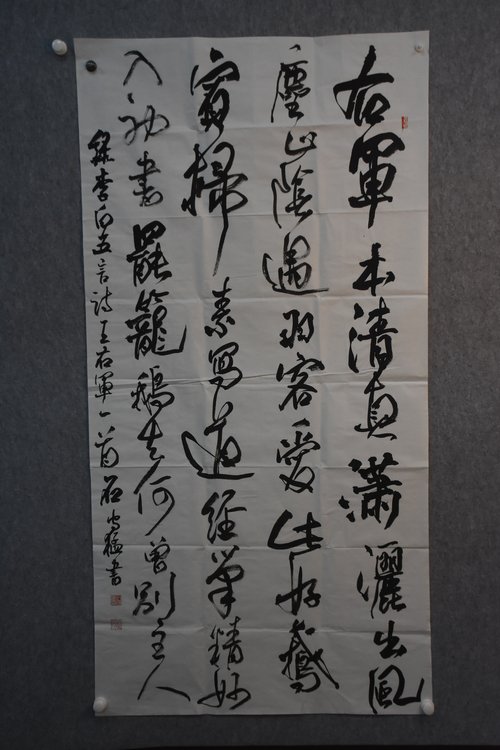 右軍本清真瀟灑出風
塵山陰遇羽客愛此好鵝
賓掃素寫道經筆精妙
入神書罷籠鵝去何曾別主人
錄李白五言詩王右軍一首石猛書